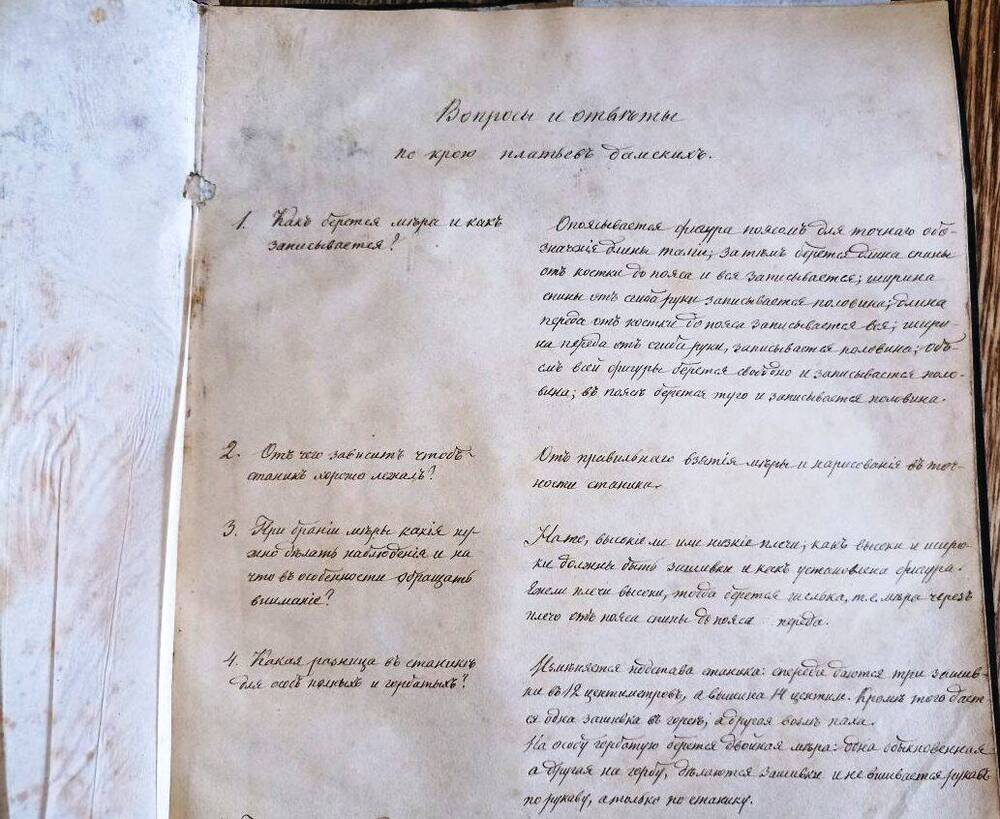 Вопросы и отвѣты
по крою платьевъ дамскихъ.
1. Какъ берется мѣра и какъ
записывается?
Опоясывается фигура поясомъ для точнаго обо-
значенія длины таліи, затѣмъ берется длина спины
отъ костки до пояса и вся записывается; ширина
спины отъ сгиба руки записывается половина; длина
переда отъ костки до пояса записывается вся; шири-
на переда отъ сгиба руки, записывается половина; объ-
емъ всей фигуры берется свободно и записывается поло-
вина; въ поясѣ берется туго и записывается половина.
2. Отъ чего зависитъ чтобъ
станикъ хорошо лежалъ?
Отъ правильнаго взятія мѣры и нарисованія въ точ-
ности станика.
3. При браніи мѣры какія ну-
жно дѣлать наблюденія и на
что въ особенности обращать
вниманіе?
На то, высокіе ли или низкіе плечи, какъ высоки и широ-
ки должны быть зашивки и какъ установлена фигура.
Ежели плечи высоки, тогда берется т.е. мѣра черезъ
плечо отъ пояса спины до пояса переда.
4. Какая разница въ станикѣ
для особъ полныхъ и горбатыхъ?
Измѣняется подстава станика: спереди даются три зашив-
ки въ 12 центиметровъ, а вышина 14 центим. Кромѣ того дает-
ся одна зашивка въ горсѣ, а другая возлѣ пала.
На особу горбатую берется двойная мѣра: одна обыкновенная
а другая на горбу, дѣлаются зашивки и не вшивается рукавъ
по рукаву, а только по станику.